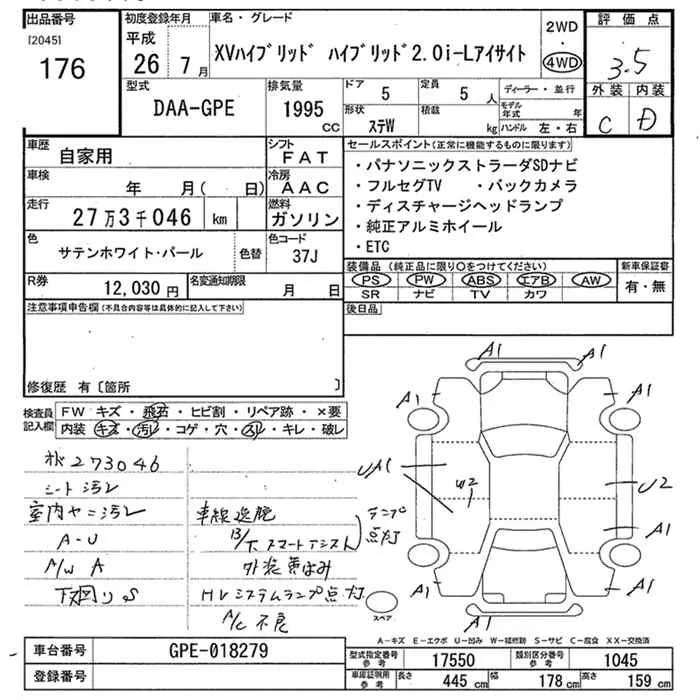 出品番号
[2045]
176
初度登録年月
平成
26年7月
車名・グレード
XVハイブリッド ハイブリッド2.0i-Lアイサイト
2WD
・
4WD
評価点
3.5
外装 内装
C D
型式
DAA-GPE
排気量
1995
cc
ドア
5
形状
ステW
定員
5人
積載
kg
ディーラー・並行
モデル年式 年
ハンドル 左・右
車歴
自家用
シフト
FAT
車検
年 月( 日)
冷房
AAC
走行
27万3千046 km
燃料
ガソリン
色
サテンホワイト・パール
色替
色コード
37J
R券
12,030円
名変通知期限
月 日
セールスポイント(正常に機能するものに限ります)
・パナソニックストラーダSDナビ
・フルセグTV ・バックカメラ
・ディスチャージヘッドランプ
・純正アルミホイール
・ETC
装備品(純正品に限り○をつけてください)
PS PW ABS エアB AW
SR ナビ TV カワ
新車保証書
有・無
注意事項申告欄(不具合内容等は具体的に記入して下さい)
後日品
修復歴 有〔箇所 〕
検査員
記入欄
FW キズ・飛石・ヒビ割・リペア跡・×要
内装 キズ・汚レ・コゲ・穴・スレ・キレ・破レ
273046
シート汚レ
室内ヤニ汚レ
A-U
A/W A
下廻りS
車線逸脱
スマートアシスト
ランプ
点灯
HVシステムランプ点灯
A/C不良
A1
A1
A1
A1
UA1
U2
A1
A1
A1
A1
スペア
A-キズ E-エクボ U-凹み W-補修跡 S-サビ C-腐食 XX-交換済
車台番号
GPE-018279
登録番号
型式指定番号
参考
17550
類別区分番号
参考
1045
車庫証明用
参考
長さ
445 cm
幅
178 cm
高さ
159 cm